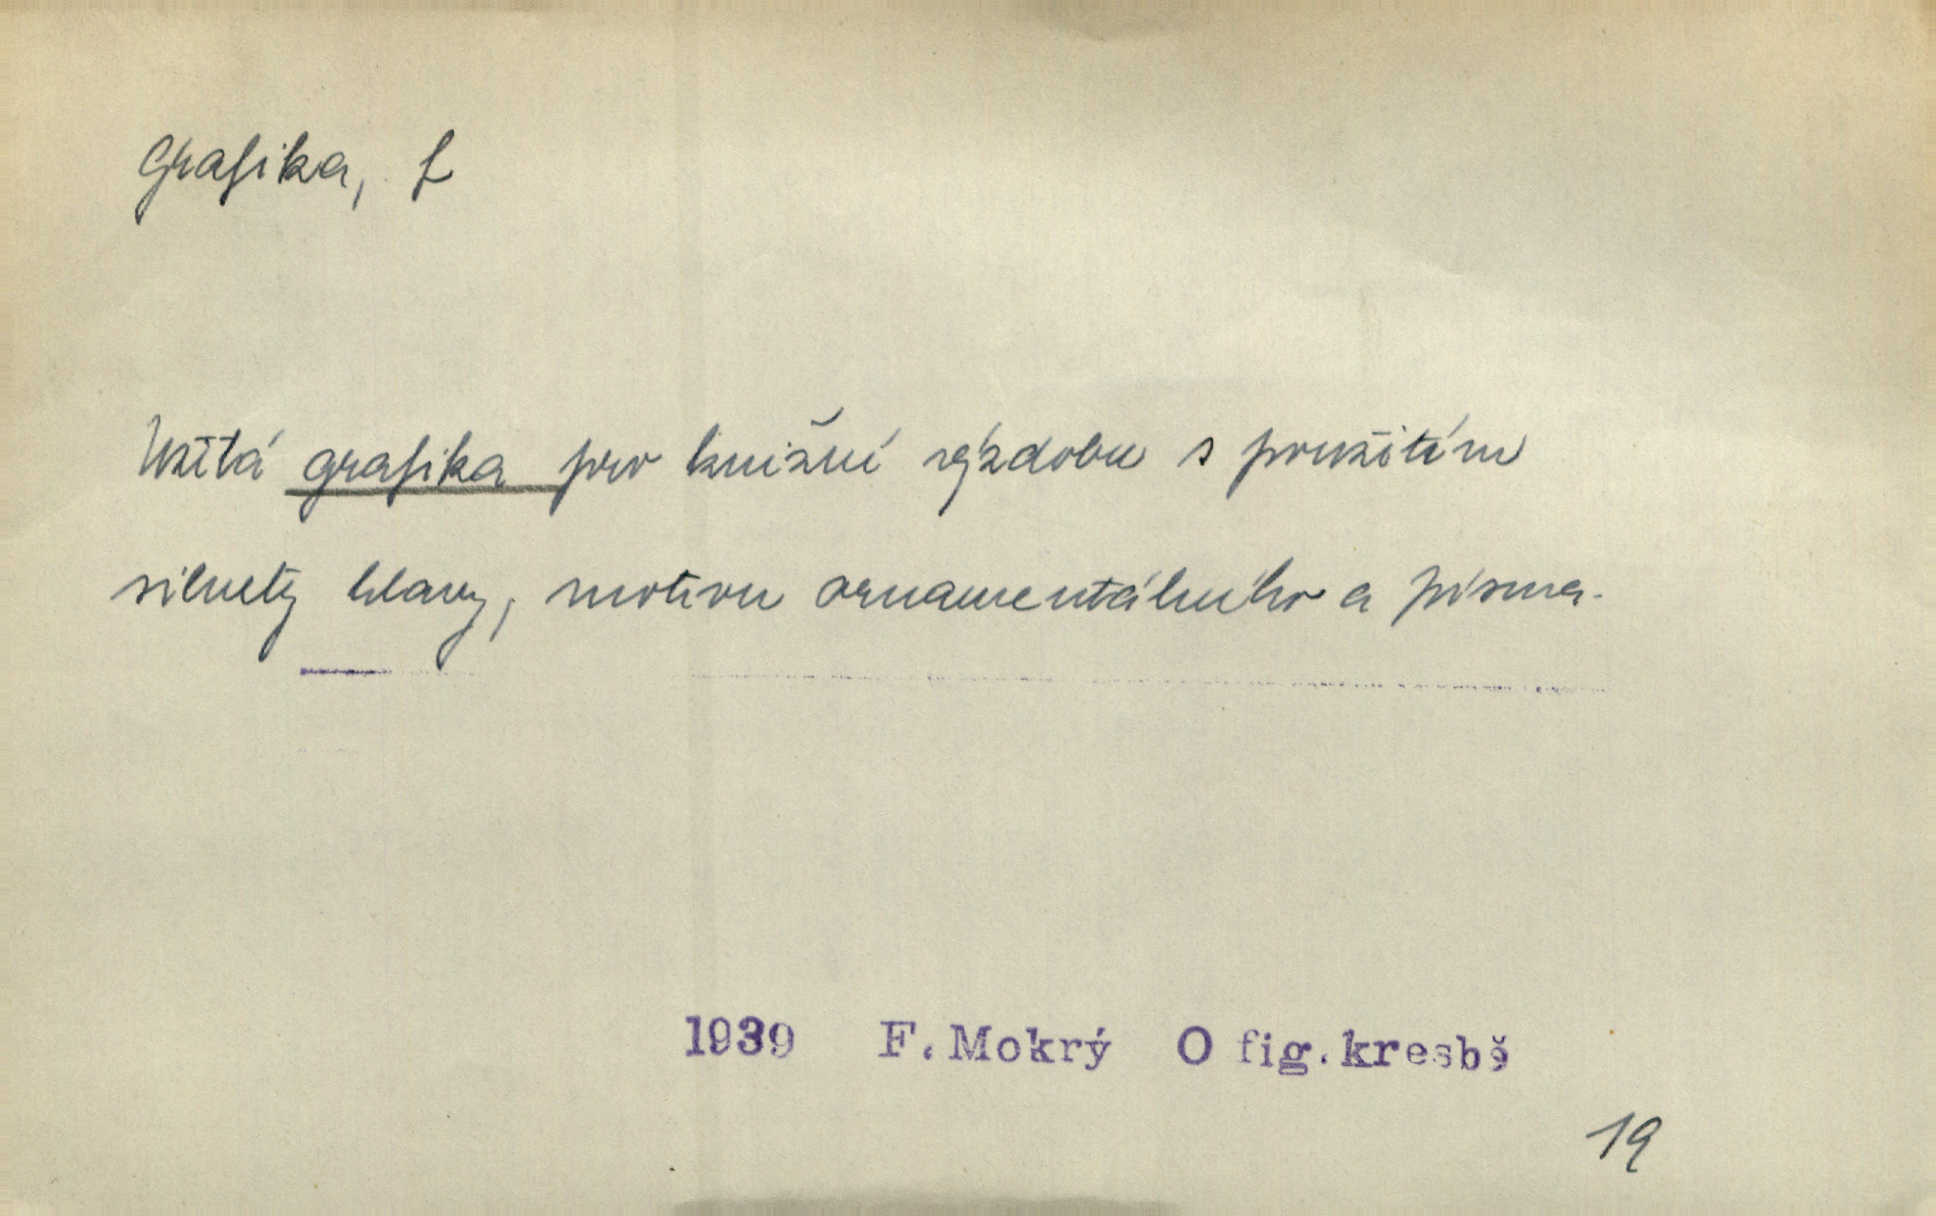 Grafika, f
Užitá grafika pro knižní výzdobu s použitím
siluety hlavy, motivu ornamentálního a písma.
1939 F. Mokrý O fig. kresbě
19